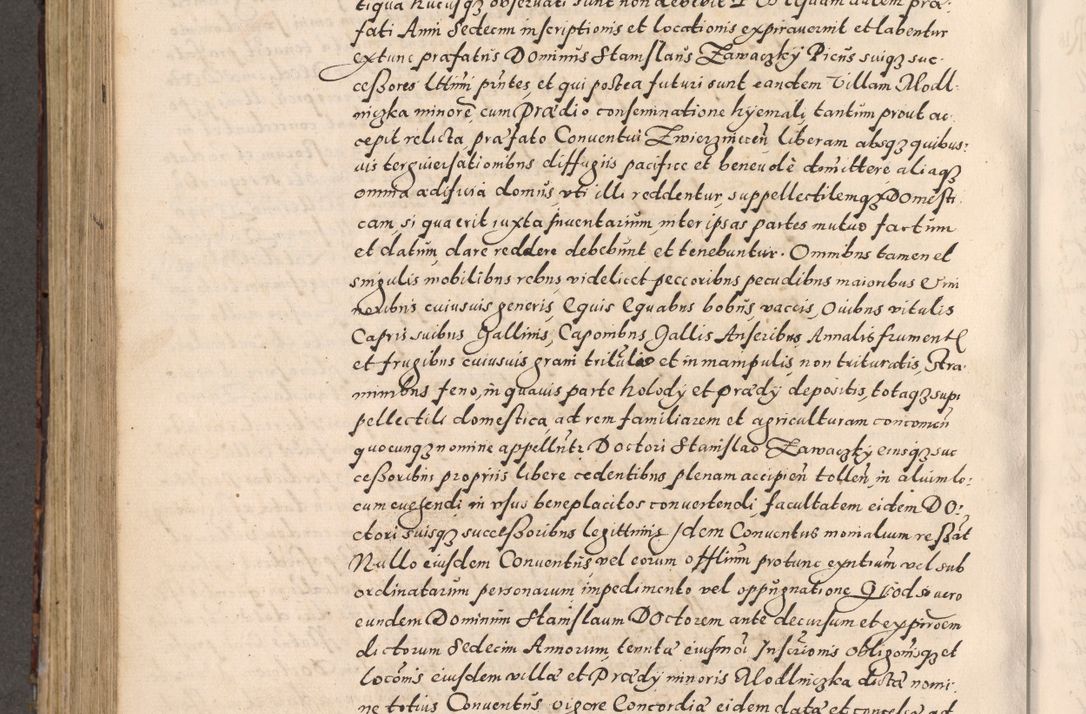 tiqua hucusqȝ observari sunt non debebit
fati Anni Sedecim inscriptionis et locationis expiraverint et labentur
extunc præfatus Dominus Stanislaus Zawaczkÿ Picus suiqȝ suc-
ceßores lttimi pñtes, et qui postea futuri sunt eandem Villam Modl-
niczka minorẽ, cum Prædio consfeminatione hÿemali tantum prout ac-
cepit relicta præfato Conventui Zwierzinicen̄ liberam absqȝ quibus-
uis terguiersationibus diffugiis pacifice et benevolè dimittere aliaqȝ
omnia ædificia domus vti illi reddentur, suppellectilemqȝ Domesti-
cam, si qua erit iuxta Inventarium inter ipsas partes mutuo factum
et datum, dare reddere debebunt et tenebuntur. Omnibus tamen et
singulis mobilibus rebus videlicet peccoribus pecudibus maioribus &
noribus cuiusuis generis, Equis Equabus bobus, vaccis, Ouibus vitulis
Capris suibus Gallinis, Caponibus Gallis Anseribus Annalis frumenti
et frugibus cuiusuis grani et in manipulis non trituratis, Stra-
minibus feno, in quavis parte holody et prædÿ depositis, totaqȝ sup-
pellectili domestica, ad rem familiarem et agriculturam
quocunqȝ nomine Doctori Stanislao Zawaczkÿ eiusqȝ suc-
ceßoribus propriis libere cedentibus plenam accipien̄ tollen̄, in alium lo-
cum evehendi in vsus beneplacitos convertendi facultatem eidem Do-
ctori suisqȝ succeßoribus legittimis Idem Conventus monialium
Nullo eiusdem Conventus vel eorum offlium protunc exn̄tium vel sub
ordinatarum personarum impedimento vel oppugnatione Quod si vero
eundem Dominum Stanislaum Doctorem ante decursum et
dictorum Sedecim Annorum, tenutæ eiusmoi Inscr̄ionis et
locōnis eiusdem villæ et Prædÿ minoris Modlniczka dictæ nomi-
ne totius Conventus vigore Concordiæ eidem datæ et ad